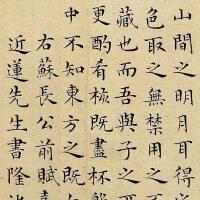 山間之明月耳得之
色取之無禁用之
藏也而吾與子之
更酌看核既盡杯
中不知東方之既
右蘇長公前賦
近蓮先生書隆